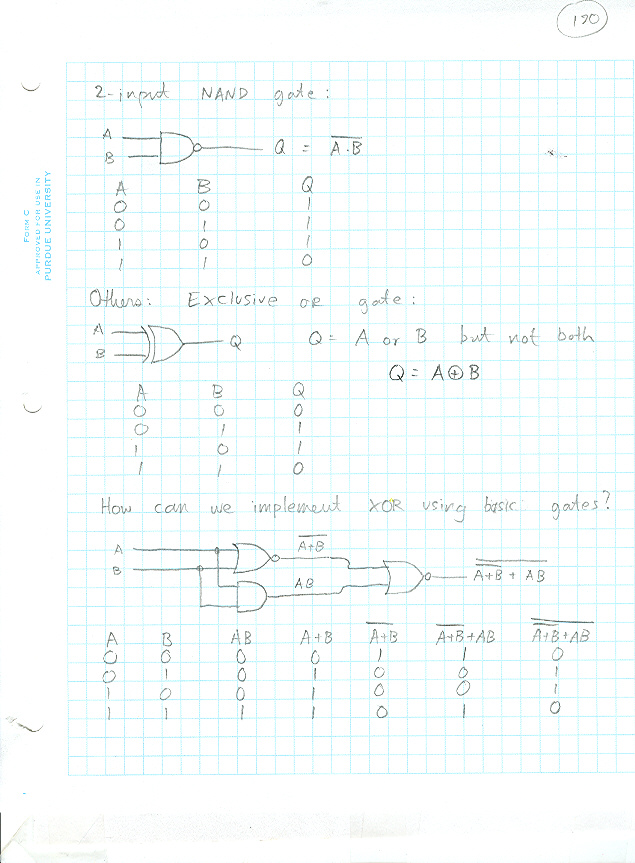 190
FORM C
APPROVED FOR USE IN
PURDUE UNIVERSITY
2-input NAND gate:
A
B
Q = A̅·̅B̅
A B Q
0 0 1
0 1 1
1 0 1
1 1 0
Others: Exclusive OR gate:
A
B
Q
Q = A or B but not both
Q = A⊕B
A B Q
0 0 0
0 1 1
1 0 1
1 1 0
How can we implement XOR using basic gates?
A
B
A̅+̅B̅
AB
\overline{\overline{A+B} + AB}
A B AB A+B \overline{A+B} \overline{A+B}+AB \overline{\overline{A+B}+AB}
0 0 0 0 1 1 0
0 1 0 1 0 0 1
1 0 0 1 0 0 1
1 1 1 1 0 1 0